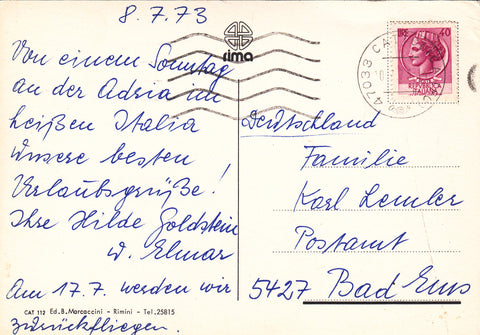 8.7.73
Von einem Sonntag
an der Adria im
heißen Italia
unsere besten
Urlaubsgrüße!
Ihre Hilde Goldstein
u. Elmar
Am 17.7. werden wir
zurückfliegen.
CAT 112 Ed.B.Marcaccini - Rimini - Tel.25815
rima
LIRE 40
47033 CA
Deutschland
Familie
Karl Lemler
Postamt
5427 Bad Ems